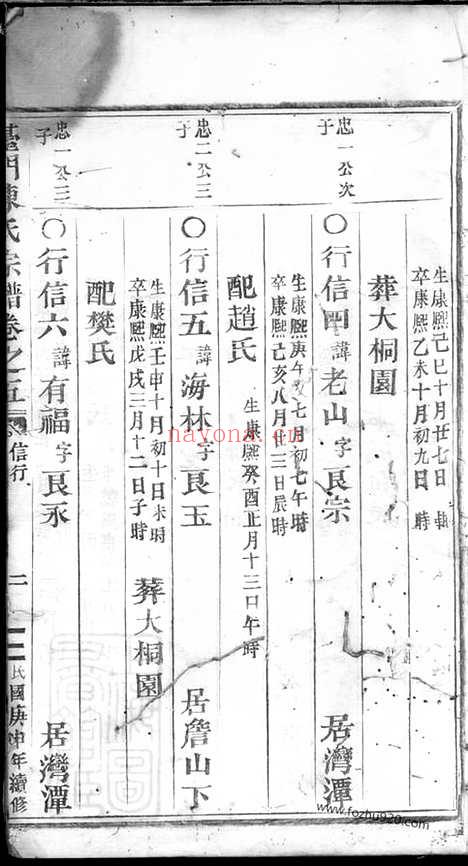 生康熙己巳十月廿七日 時
卒康熙乙未十月初九日 時
葬大桐園
忠一公次子
○行信四諱老山字良宗 居灣潭
生康熙庚午七月初七午時
卒康熙己亥八月十三日辰時
配趙氏
生康熙癸酉正月十三日午時
忠二公三子
○行信五諱海林字良玉 居詹山下
生康熙壬申十月初十日未時
卒康熙戊戌三月十二日子時
葬大桐園
配樊氏
忠一公三子
○行信六諱有福字良永 居灣潭
陳氏宗譜卷之五 信行 二 民國庚申年續修
nayona.cn
www.fozhu920.com